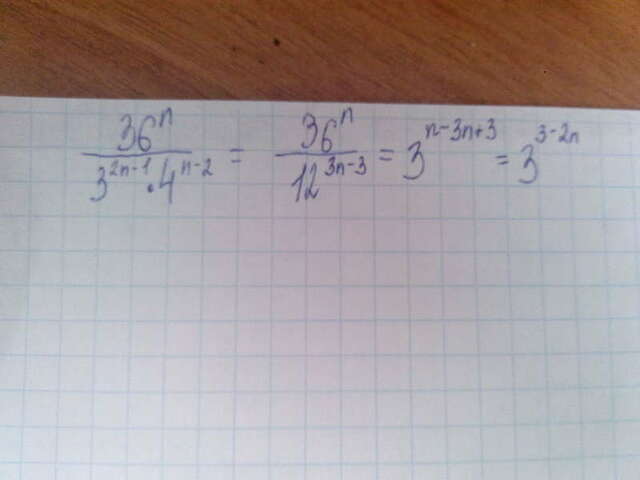 36^n / (3^(2n-1) · 4^(n-2)) = 36^n / 12^(3n-3) = 3^(n-3n+3) = 3^(3-2n)